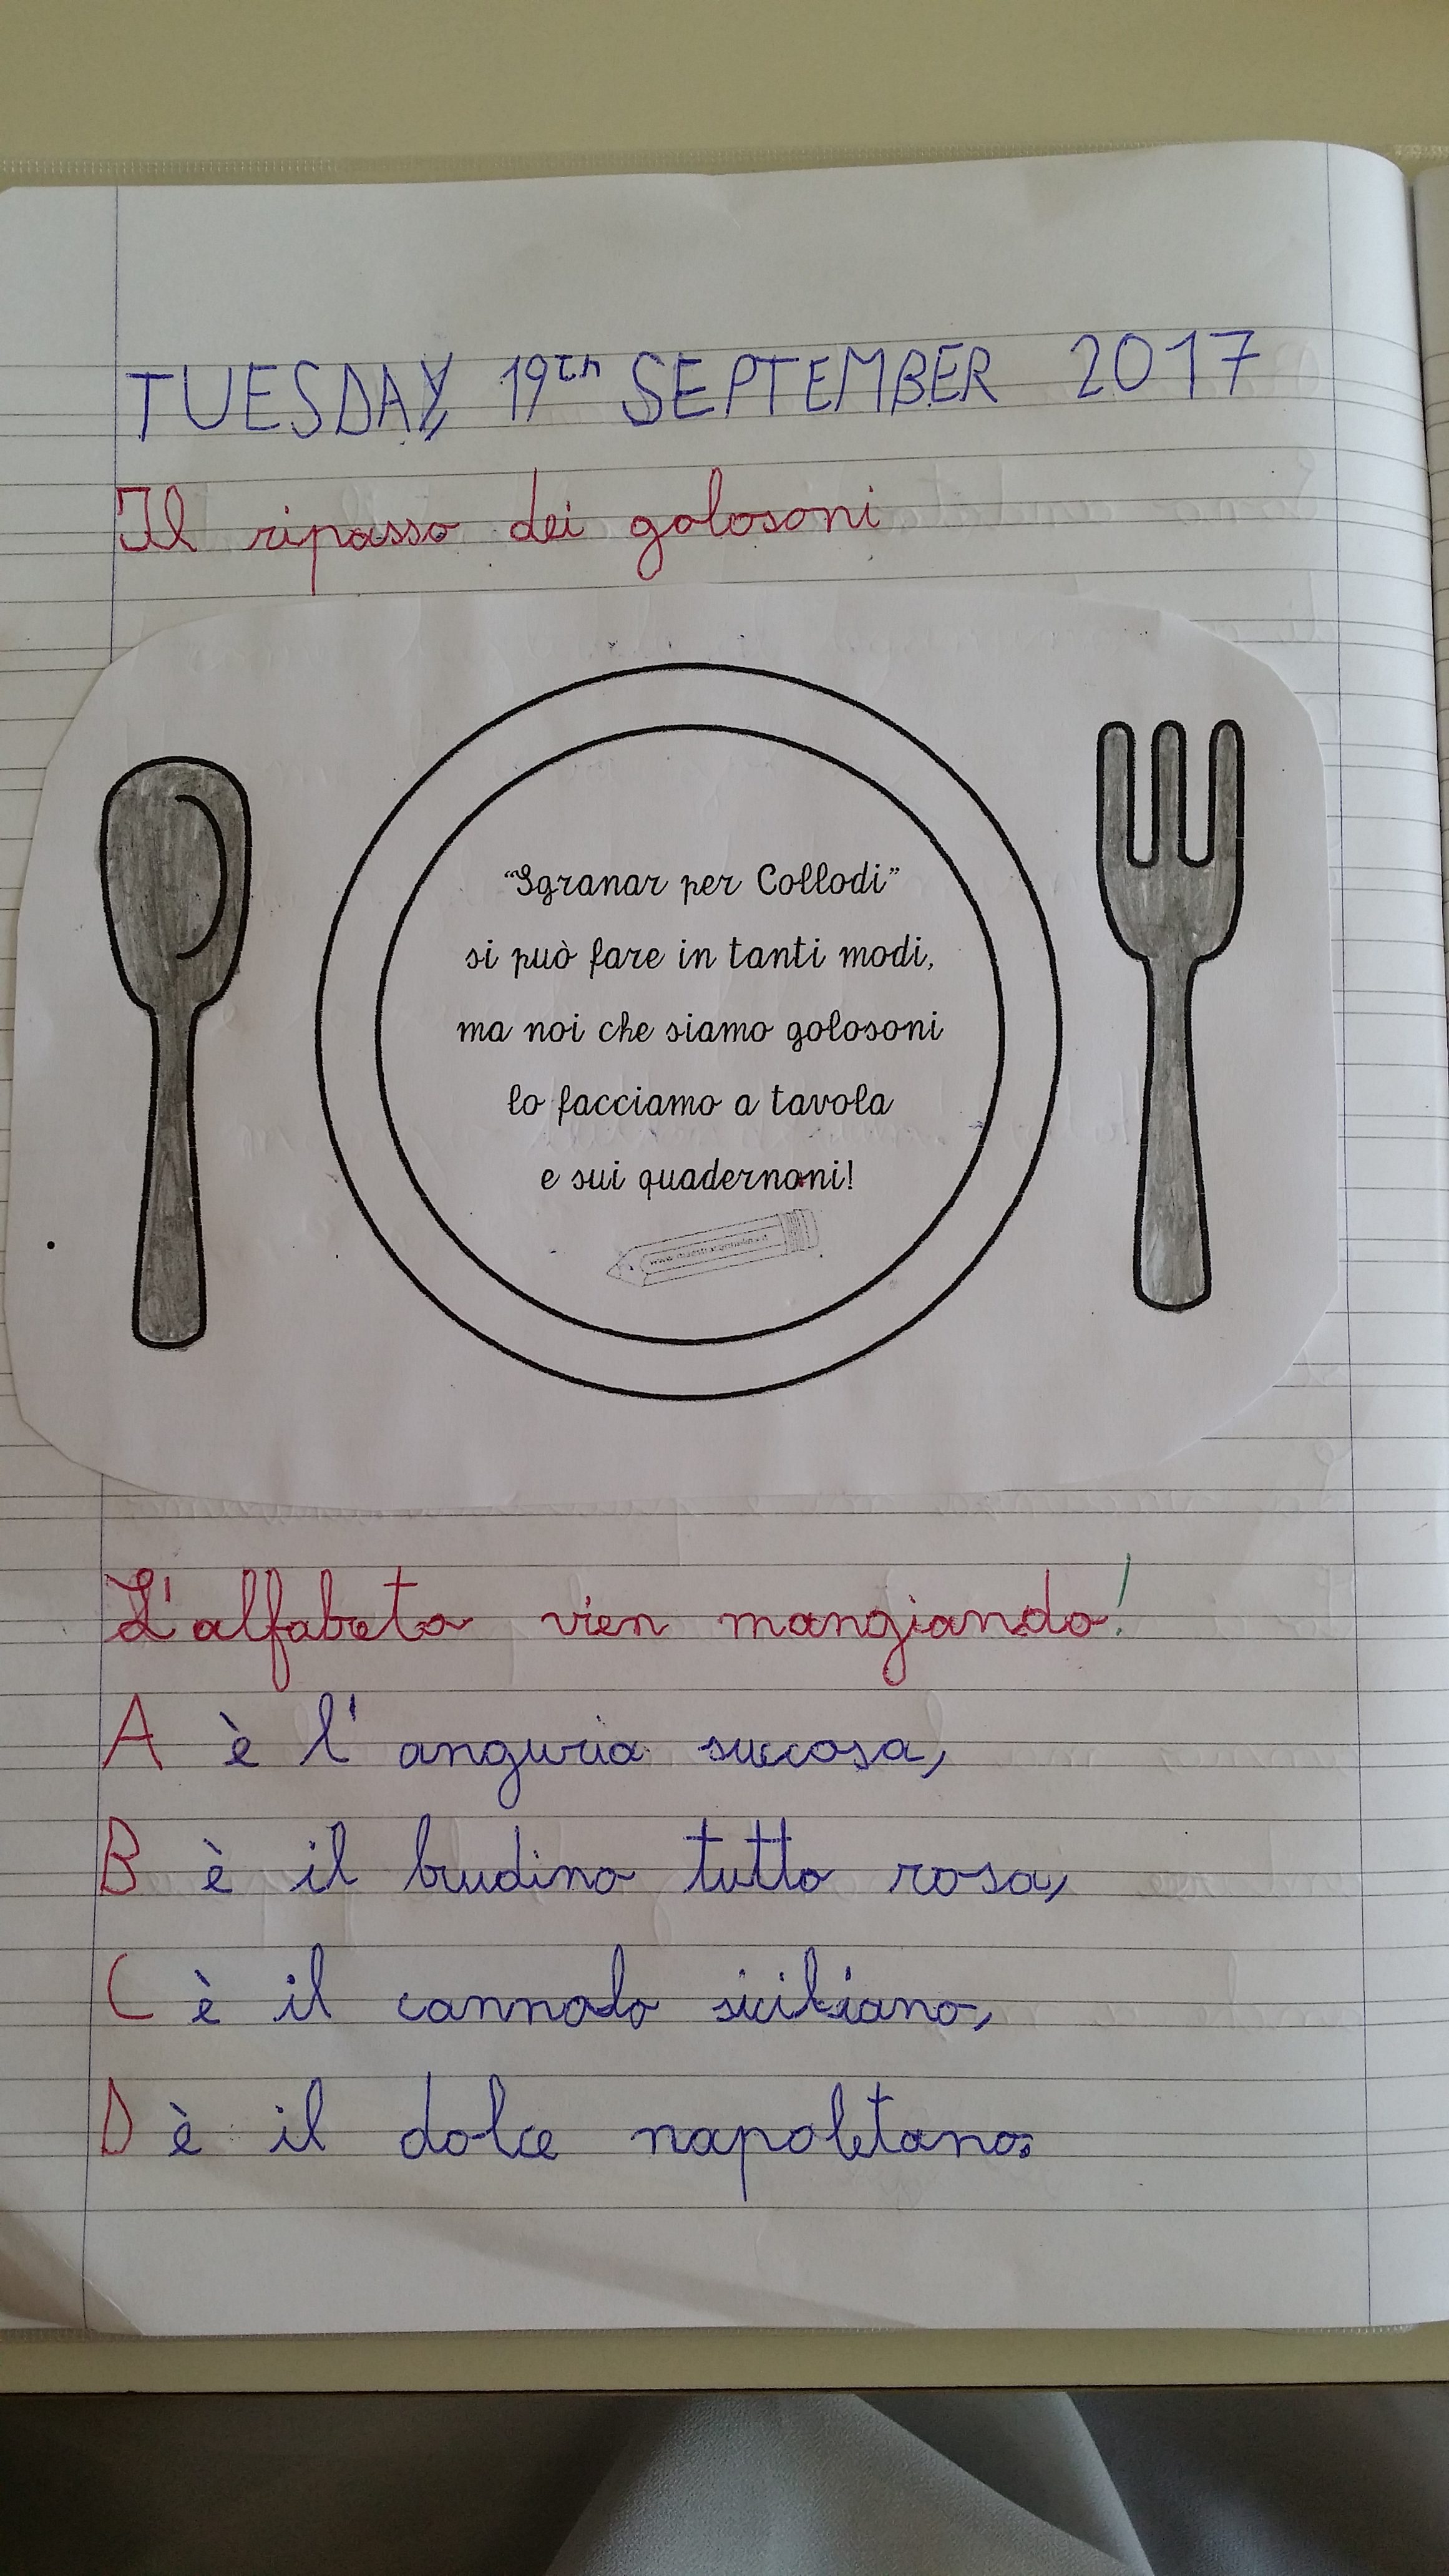 TUESDAY, 19th SEPTEMBER 2017
Il ripasso dei golosoni
“Sgranar per Collodi”
si può fare in tanti modi,
ma noi che siamo golosoni
lo facciamo a tavola
e sui quadernoni!
L'alfabeto vien mangiando!
A è l'anguria succosa,
B è il budino tutto rosa,
C è il cannolo siciliano,
D è il dolce napoletano.